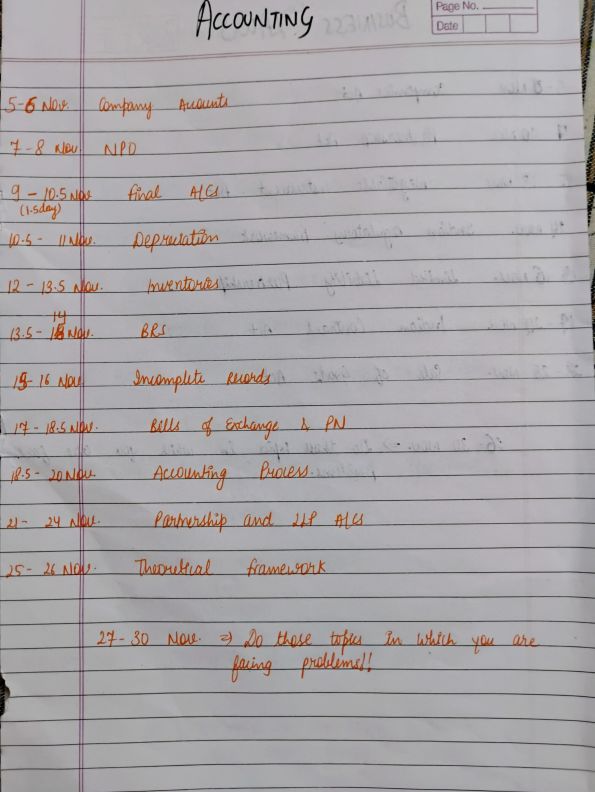 ACCOUNTING
Page No.
Date
5-6 Nov. Company Accounts
7-8 Nov. NPO
9-10.5 Nov Final A/Cs
(1.5day)
10.5 - 11 Nov. Depreciation
12 - 13.5 Nov. Inventories
13.5 - 14 Nov. BRS
15- 16 Nov. Incomplete Records
17 - 18.5 Nov. Bills of Exchange & PN
18.5 - 20 Nov. Accounting Process
21 - 24 Nov. Partnership and LLP A/Cs
25 - 26 Nov. Theoretical framework
27-30 Nov. ⇒ Do those topics in which you are
facing problems!!